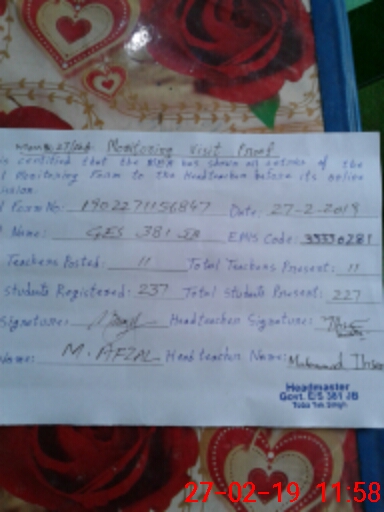 Monitoring Visit Proof
certified that the has shown all entries of the
Monitoring Form to the Headteacher before its online
Form No: 1902271156847 Date: 27-2-2019
Name: GES 381 JB EMIS Code: 33330281
Teachers Posted: 11 Total Teachers Present: 11
students Registered: 237 Total Students Present: 227
Signature: Headteacher Signature:
Name: M. AFZAL Headteacher Name: Muhammad
Headmaster
Govt. E/S 381 JB
Toba Tek Singh
27-02-19 11:58